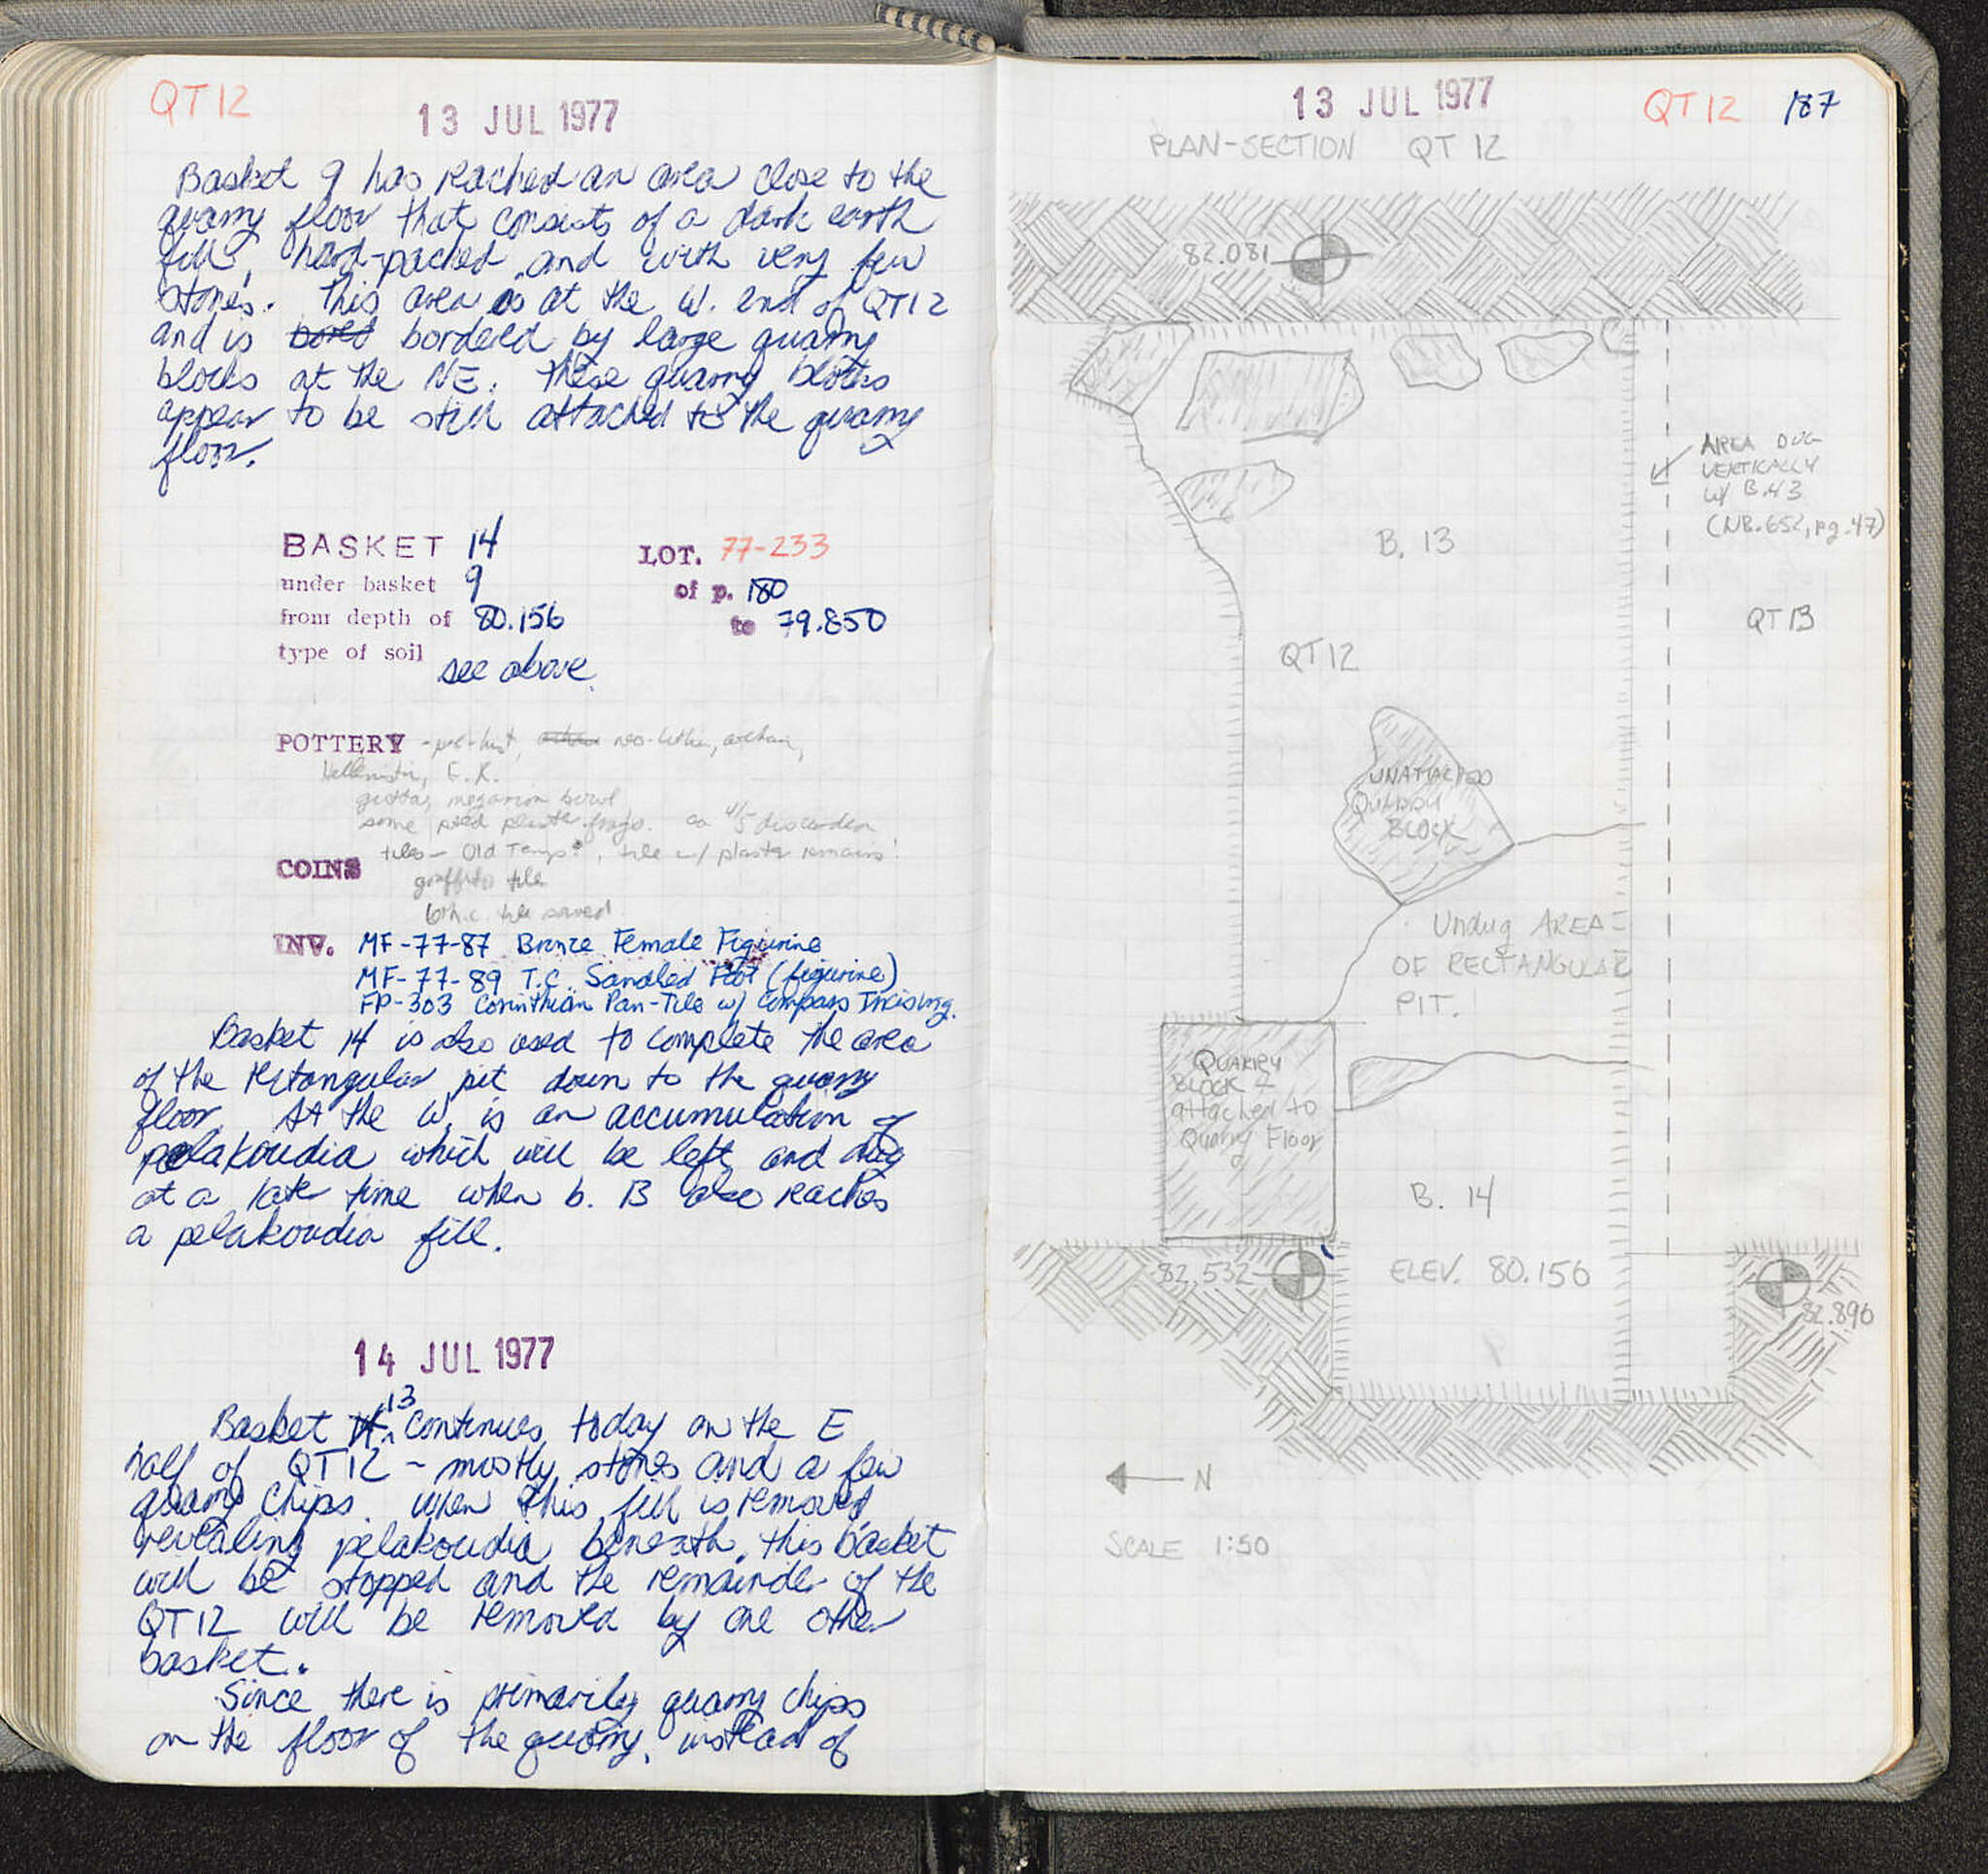 QT 12
13 JUL 1977
Basket 9 has reached an area close to the
quarry floor that consists of a dark earth
fill, hard-packed and with very few
stones. This area is at the W. end of QT12
and is bordered by large quarry
blocks at the NE. These quarry blocks
appear to be still attached to the quarry
floor.
BASKET 14
LOT. 77-233
under basket 9
of p. 180
from depth of 80.156
to 79.850
type of soil see above.
POTTERY - pre-hist, neo-lithic, archaic,
Hellenistic, E.R.
gutta, megarian bowl
some ptd plaster frags. ca 4/5 discarded
tiles - Old Temp?, tile w/ plaster remains!
COINS
graffito tile
6th.c. tile saved
INV. MF-77-87 Bronze Female Figurine
MF-77-89 T.C. Sandled Foot (figurine)
FP-303 Corinthian Pan-Tile w/ Compass Incising.
Basket 14 is also used to complete the area
of the rectangular pit down to the quarry
floor. At the W. is an accumulation of
pelakoudia which will be left and dug
at a late time when b. 13 also reaches
a pelakoudia fill.
14 JUL 1977
Basket 13 continues today on the E
half of QT12 - mostly stones and a few
quarry chips. When this fill is removed,
revealing pelakoudia beneath, this basket
will be stopped and the remainder of the
QT12 will be removed by one other
basket.
Since there is primarily quarry chips
on the floor of the quarry, instead of
13 JUL 1977
QT 12 187
PLAN-SECTION QT 12
82.081
AREA DUG
VERTICALLY
W/ B.43
(NB.652, pg.47)
B. 13
QT 13
QT 12
UNATTACHED
QUARRY
BLOCK
Undug AREA
OF RECTANGULAR
PIT.
QUARRY
BLOCK
attached to
Quarry Floor
B. 14
82.532
ELEV. 80.156
82.890
N
SCALE 1:50